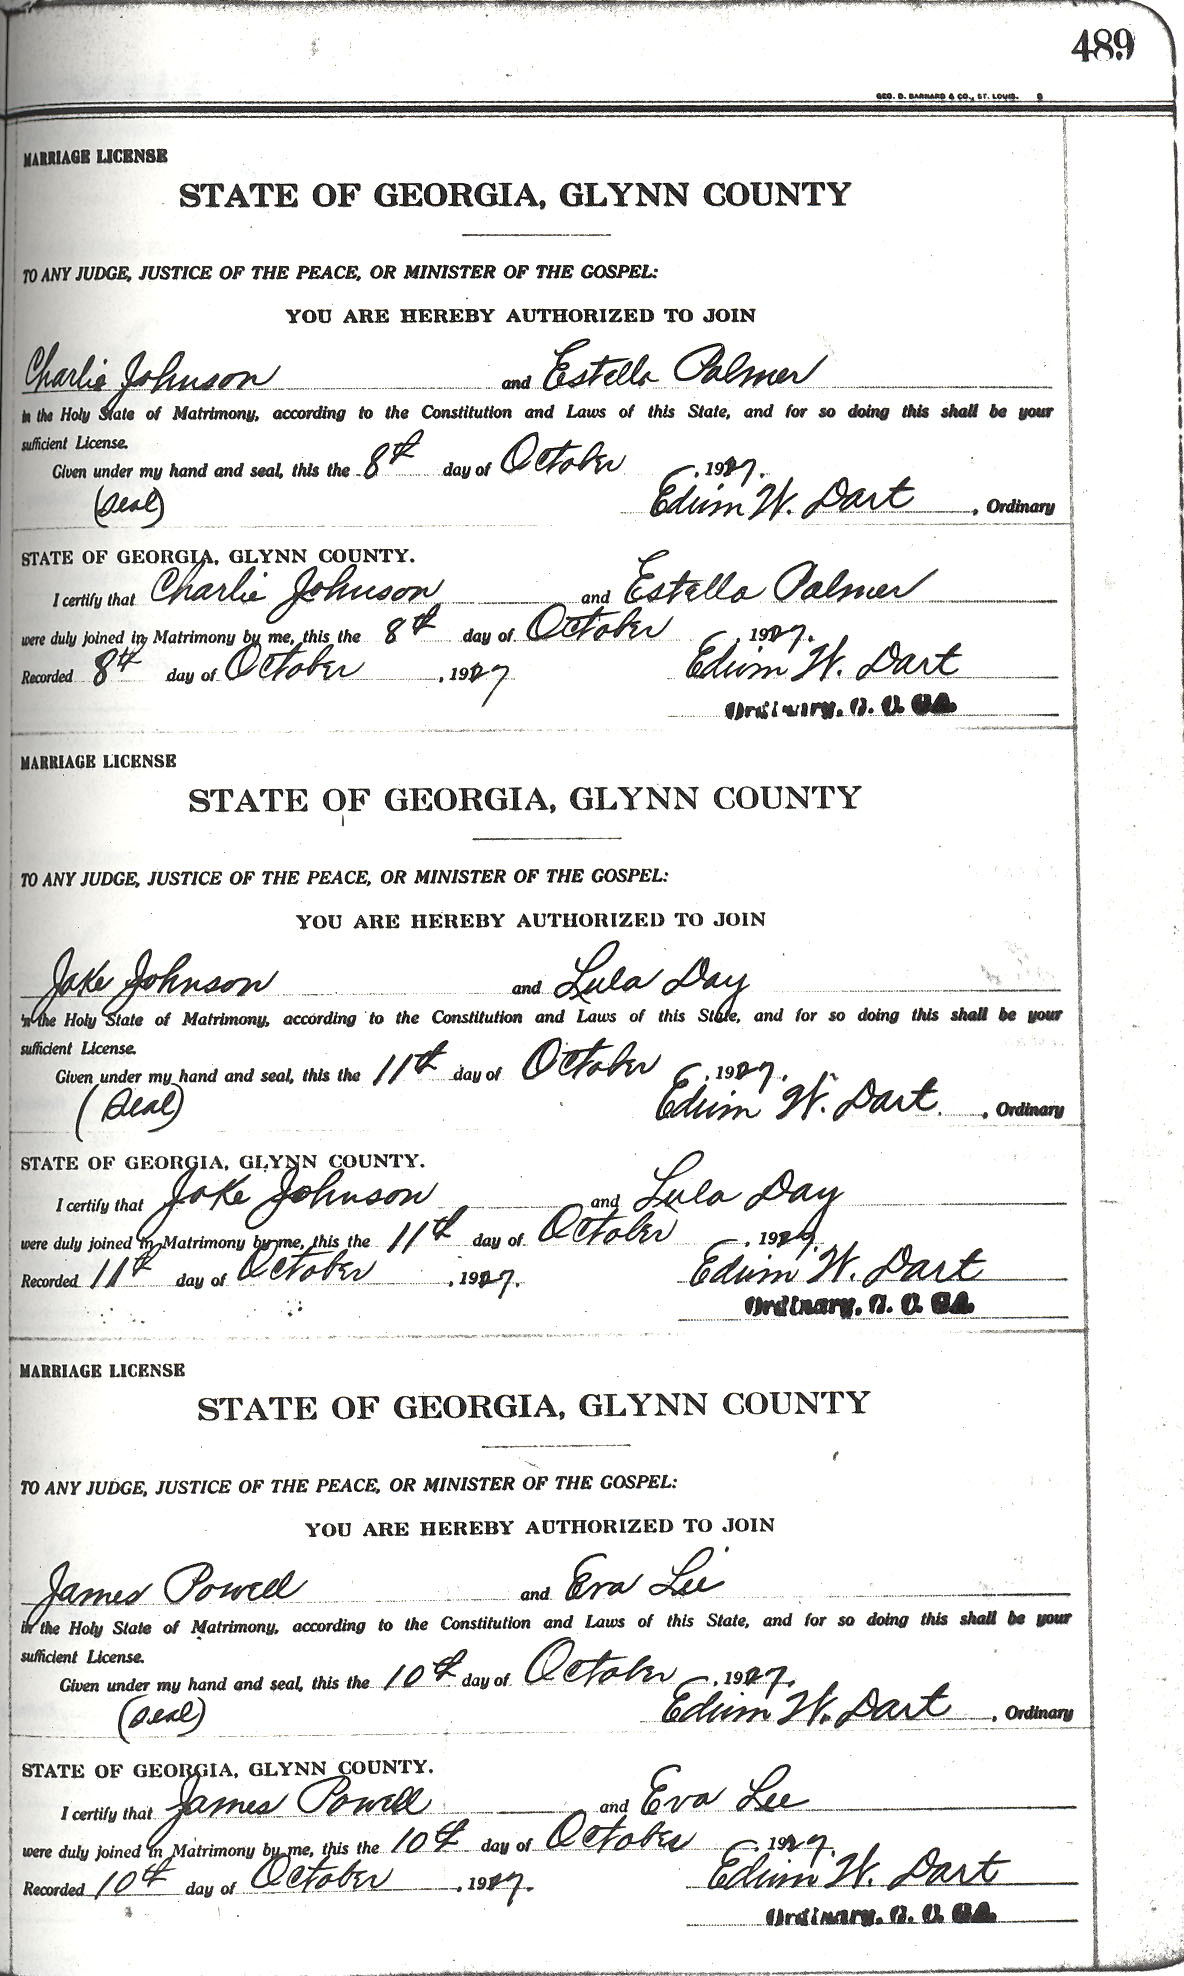 489
GEO. D. BARNARD & CO., ST. LOUIS.
MARRIAGE LICENSE
STATE OF GEORGIA, GLYNN COUNTY
TO ANY JUDGE, JUSTICE OF THE PEACE, OR MINISTER OF THE GOSPEL:
YOU ARE HEREBY AUTHORIZED TO JOIN
Charlie Johnson and Estella Palmer
in the Holy State of Matrimony, according to the Constitution and Laws of this State, and for so doing this shall be your
sufficient License.
Given under my hand and seal, this the 8th day of October, 1927.
(Seal) Edwin W. Dart, Ordinary
STATE OF GEORGIA, GLYNN COUNTY.
I certify that Charlie Johnson and Estella Palmer
were duly joined in Matrimony by me, this the 8th day of October, 1927.
Recorded 8th day of October, 1927 Edwin W. Dart
Ordinary, G. C. GA.
MARRIAGE LICENSE
STATE OF GEORGIA, GLYNN COUNTY
TO ANY JUDGE, JUSTICE OF THE PEACE, OR MINISTER OF THE GOSPEL:
YOU ARE HEREBY AUTHORIZED TO JOIN
Jake Johnson and Lula Day
in the Holy State of Matrimony, according to the Constitution and Laws of this State, and for so doing this shall be your
sufficient License.
Given under my hand and seal, this the 11th day of October, 1927.
(Seal) Edwin W. Dart, Ordinary
STATE OF GEORGIA, GLYNN COUNTY.
I certify that Jake Johnson and Lula Day
were duly joined in Matrimony by me, this the 11th day of October, 1927.
Recorded 11th day of October, 1927. Edwin W. Dart
Ordinary, G. C. GA.
MARRIAGE LICENSE
STATE OF GEORGIA, GLYNN COUNTY
TO ANY JUDGE, JUSTICE OF THE PEACE, OR MINISTER OF THE GOSPEL:
YOU ARE HEREBY AUTHORIZED TO JOIN
James Powell and Eva Lee
in the Holy State of Matrimony, according to the Constitution and Laws of this State, and for so doing this shall be your
sufficient License.
Given under my hand and seal, this the 10th day of October, 1927.
(Seal) Edwin W. Dart, Ordinary
STATE OF GEORGIA, GLYNN COUNTY.
I certify that James Powell and Eva Lee
were duly joined in Matrimony by me, this the 10th day of October, 1927.
Recorded 10th day of October, 1927. Edwin W. Dart
Ordinary, G. C. GA.